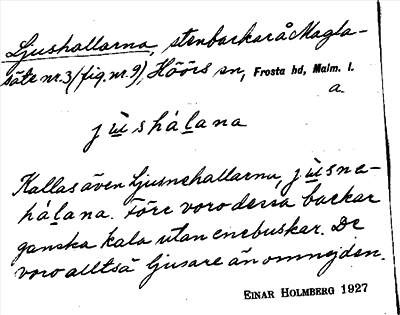 Ljushallarna, stenbackar å Magla-
säte nr. 3 (fig. nr. 9), Höörs sn, Frosta hd, Malm. l.
a.
jŭishálana
Kallas även Ljusnehallarna, jŭisna-
hálana. Före voro dessa backar
ganska kala utan enebuskar. De
voro alltså ljusare än omnejden.
EINAR HOLMBERG 1927